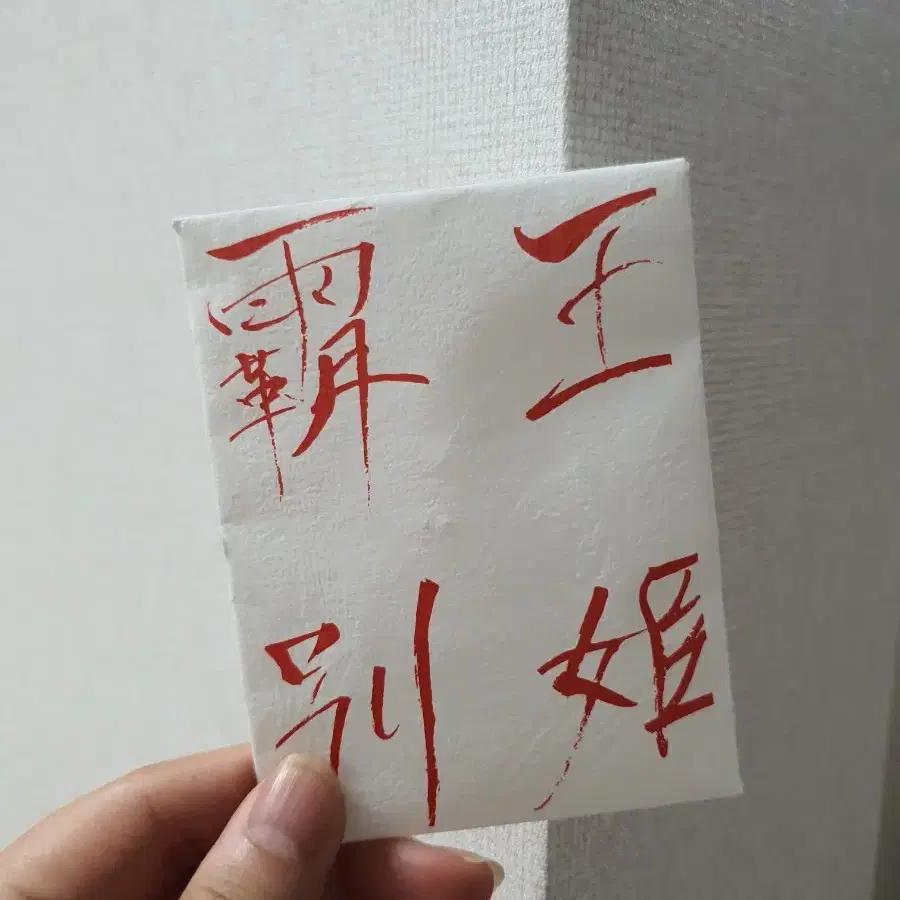 霸王
別姬